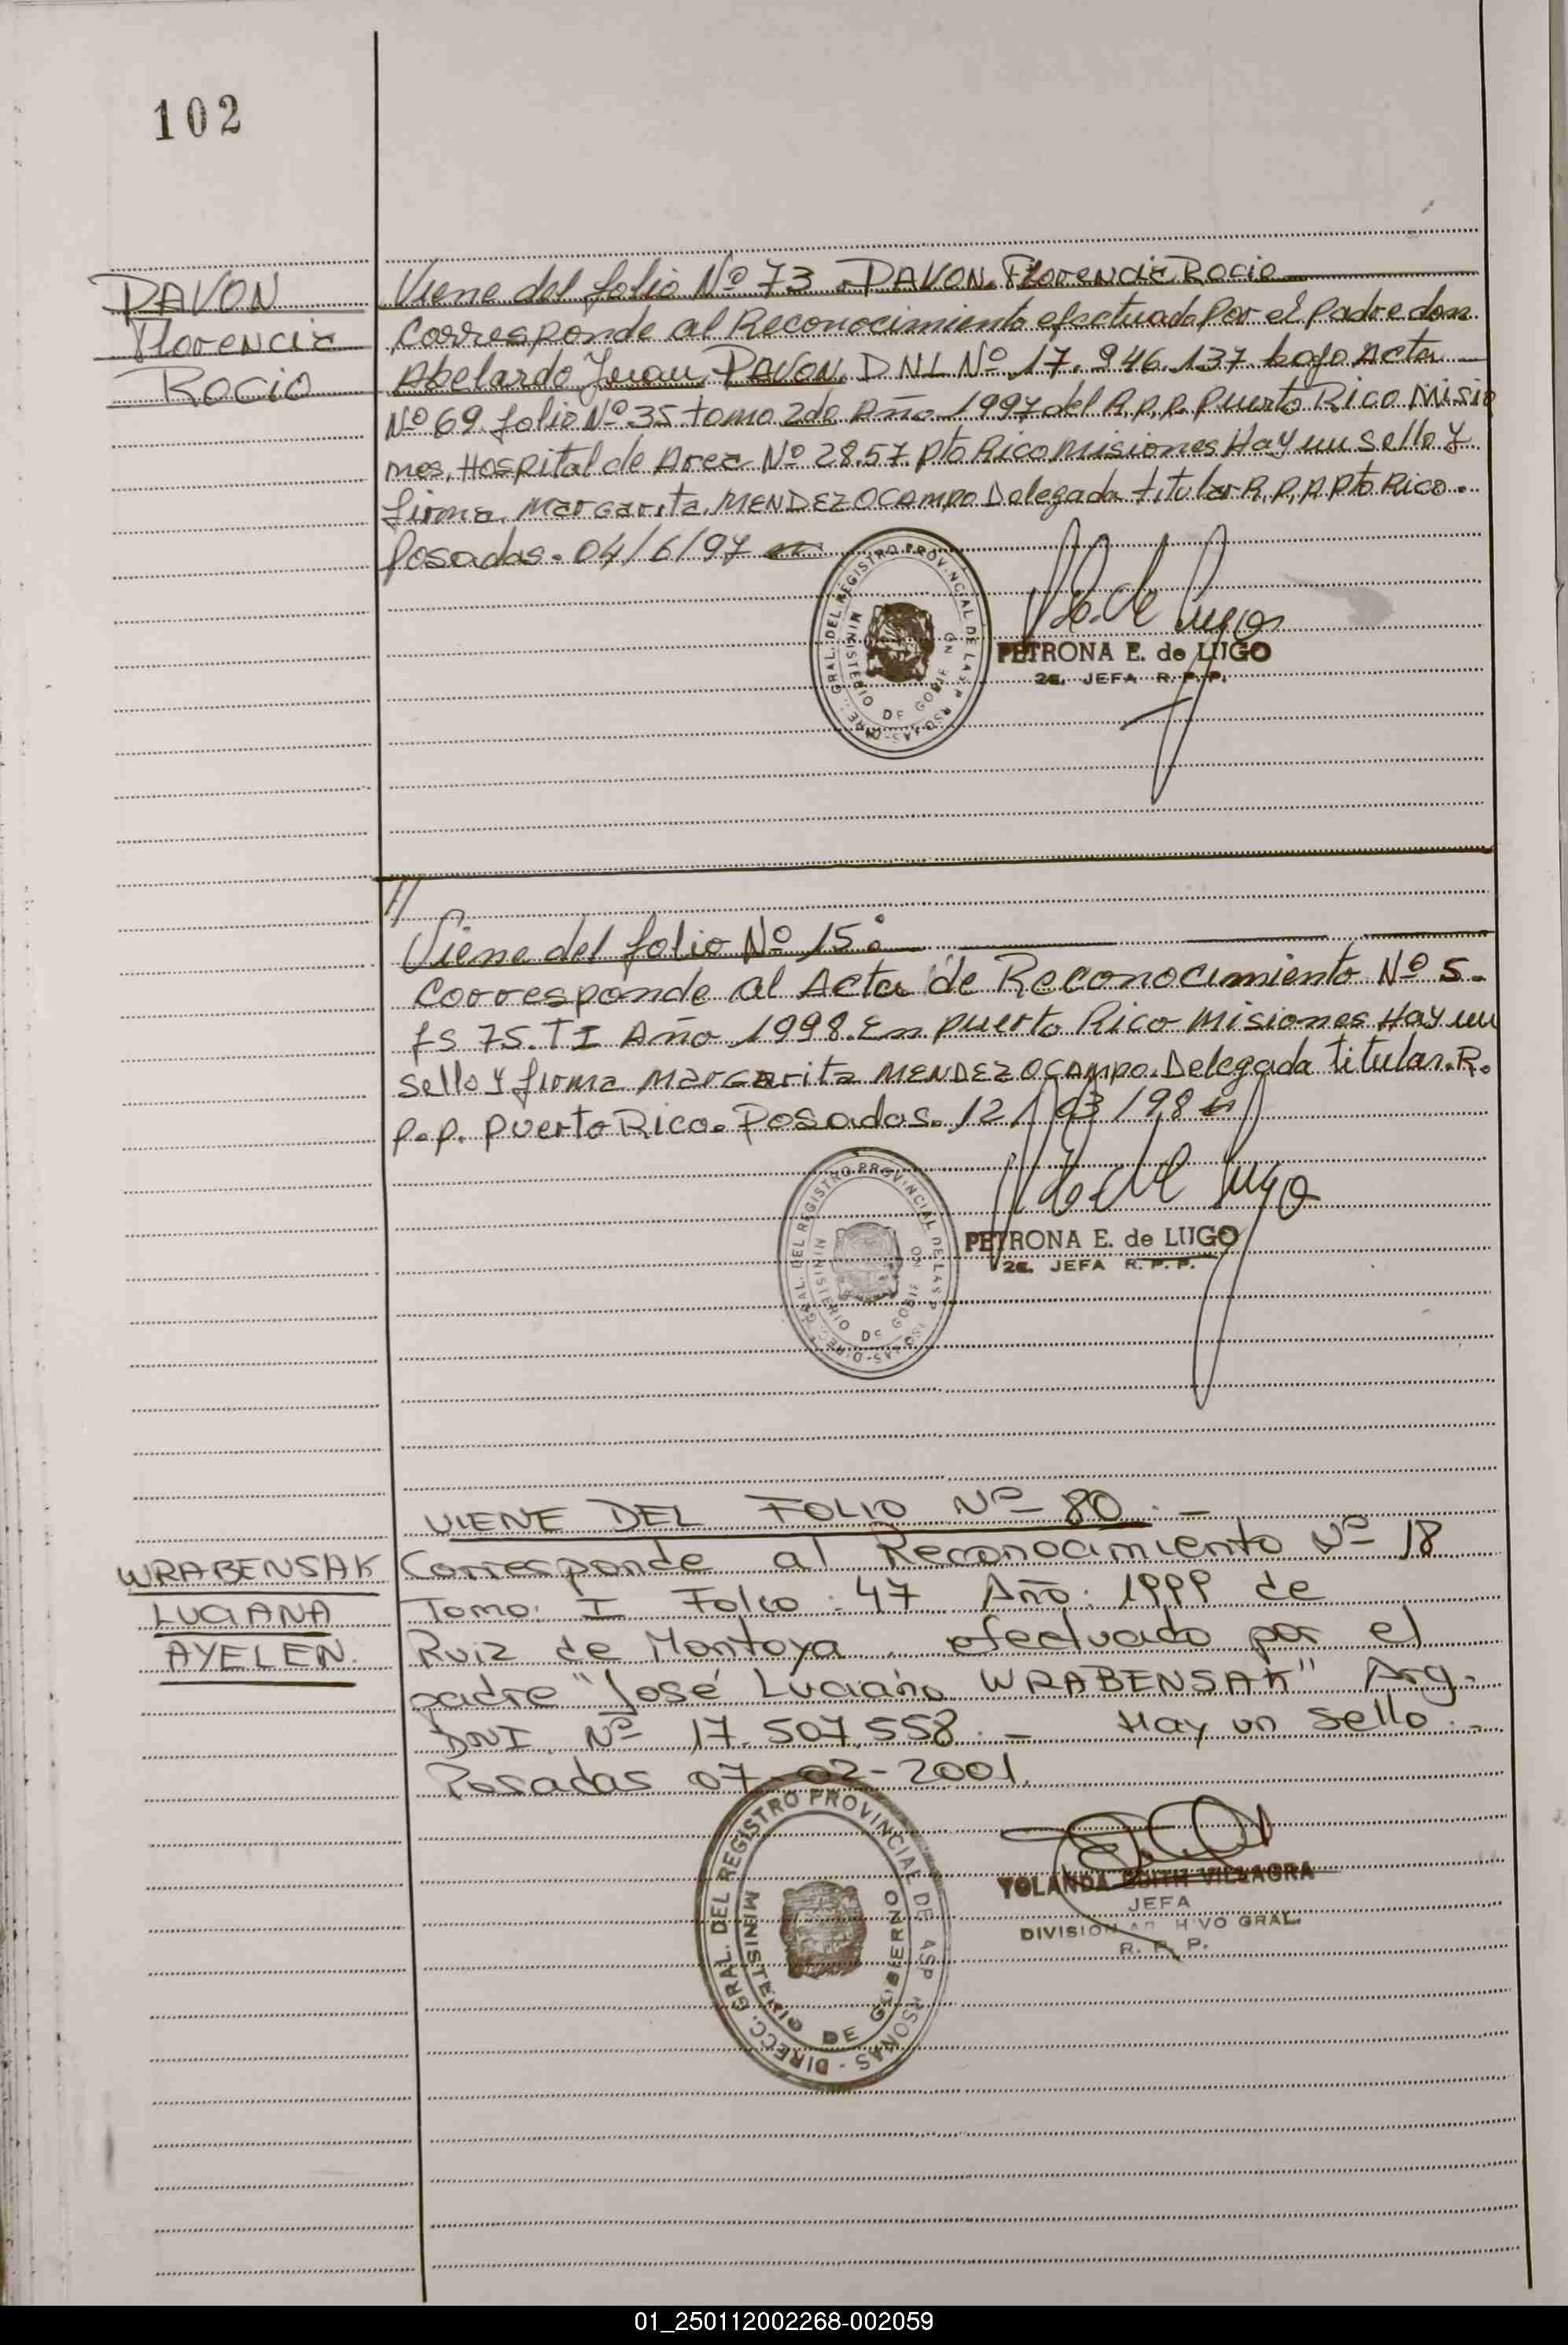 102
PAVON
Florencia
Rocio
Viene del folio Nº 73. PAVON. Florencia Rocio
Corresponde al Reconocimiento efectuado Por el Padre don
Abelardo Juan PAVON. DNI. Nº 17.946.137 bajo Acta
Nº 69 folio Nº 35 tomo 2do Año 1997 del R.P.P. Puerto Rico Misio
nes, Hospital de Area Nº 28.57. Pto Rico Misiones Hay un sello y
firma Margarita MENDEZ OCAMPO Delegada titular R.P.P. Pto Rico.
Posadas. 04/6/97
DIRECC. GRAL. DEL REGISTRO PROVINCIAL DE LAS PERSONAS
MINISTERIO DE GOBIERNO
PETRONA E. de LUGO
2a. JEFA R. P. P.
//
Viene del folio Nº 15:
Corresponde al Acta de Reconocimiento Nº 5.
fs 75. T I Año 1998. En Puerto Rico Misiones Hay un
sello y firma Margarita MENDEZ OCAMPO. Delegada titular. R.
P.P. Puerto Rico. Posadas. 12/03/98
DIRECC. GRAL. DEL REGISTRO PROVINCIAL DE LAS PERSONAS
MINISTERIO DE GOBIERNO
PETRONA E. de LUGO
2a. JEFA R. P. P.
VIENE DEL FOLIO Nº 80.-
WRABENSAK
LUCIANA
AYELEN.
Corresponde al Reconocimiento Nº 18
Tomo: I Folio: 47 Año: 1999 de
Ruiz de Montoya efectuado por el
padre "José Luciano WRABENSAK" Arg.
DNI. Nº 17.507.558.- Hay un sello.-
Posadas 07-02-2001.
DIRECC. GRAL. DEL REGISTRO PROVINCIAL DE LAS PERSONAS
MINISTERIO DE GOBIERNO
YOLANDA EDITH VILLAGRA
JEFA
DIVISION ARCHIVO GRAL.
R. P. P.
01_250112002268-002059